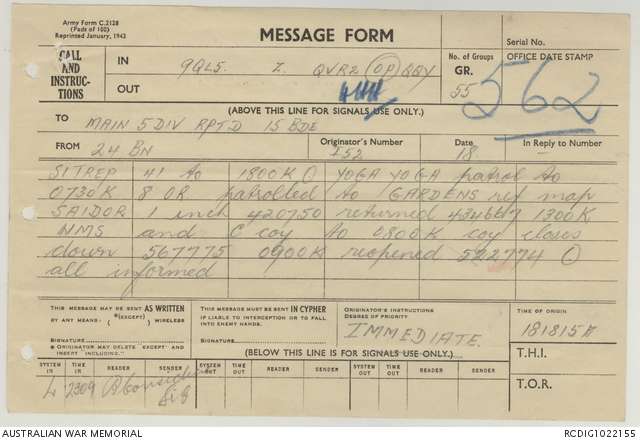 Army Form C.2128
(Pads of 100)
Reprinted January, 1942
MESSAGE FORM
Serial No.
CALL AND INSTRUC-TIONS
IN 9QL5. Z. QVR2 (OP) QBY
No. of Groups
GR.
55
OFFICE DATE STAMP
562
OUT
(ABOVE THIS LINE FOR SIGNALS USE ONLY.)
TO MAIN 5 DIV RPTD 15 BDE
FROM 24 BN
Originator's Number
I52
Date
18.
In Reply to Number
—
SITREP 41 to 1800K O YOGA YOGA patrol to
0730K 8 OR patrolled to GARDENS ref map
SAIDOR 1 inch 420750 returned 434667 1300K
and C coy to 0800K coy closes
down 567775 0900K reopened 522774 O
all informed
THIS MESSAGE MAY BE SENT AS WRITTEN
BY ANY MEANS: (*(EXCEPT) ) WIRELESS
SIGNATURE
* ORIGINATOR MAY DELETE "EXCEPT" AND
INSERT "INCLUDING."
THIS MESSAGE MUST BE SENT IN CYPHER
IF LIABLE TO INTERCEPTION OR TO FALL
INTO ENEMY HANDS.
SIGNATURE
ORIGINATOR'S INSTRUCTIONS
DEGREE OF PRIORITY
IMMEDIATE.
TIME OF ORIGIN
181815K
(BELOW THIS LINE IS FOR SIGNALS USE ONLY.)
T.H.I.
T.O.R.
SYSTEM IN TIME IN READER SENDER SYSTEM OUT TIME OUT READER SENDER SYSTEM OUT TIME OUT READER SENDER
L 2309 Sig
AUSTRALIAN WAR MEMORIAL
RCDIG1022155